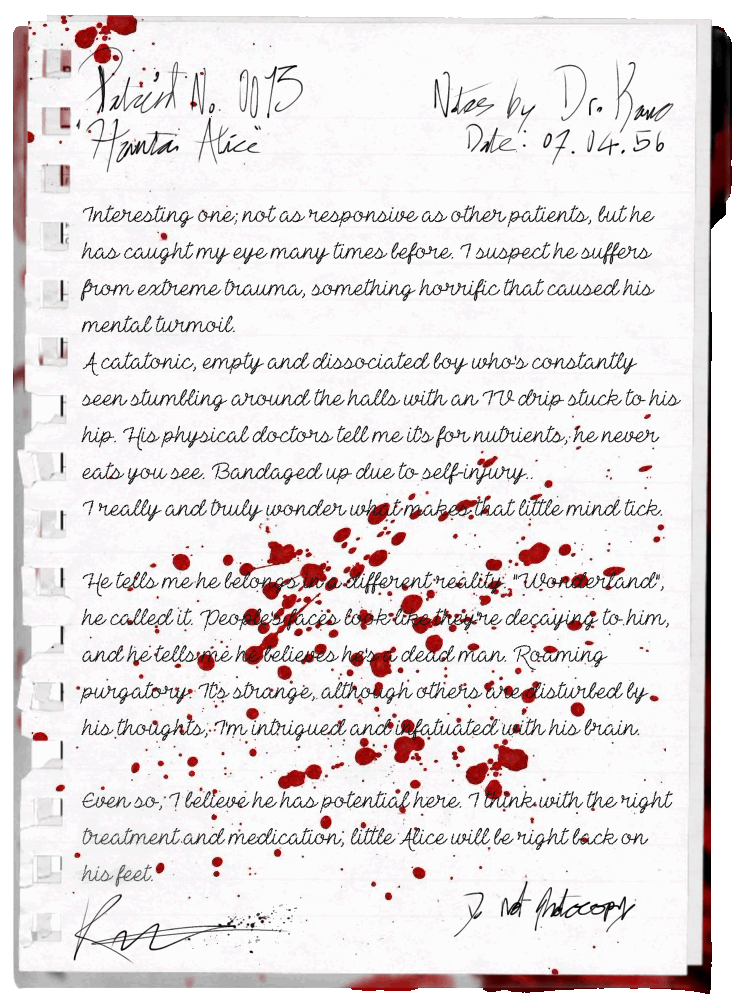 Patient No. 0013
Notes by Dr. Kano
"Hainta Alice"
Date: 07.04.56
Interesting one; not as responsive as other patients, but he
has caught my eye many times before. I suspect he suffers
from extreme trauma, something horrific that caused his
mental turmoil.
A catatonic, empty and dissociated boy who's constantly
seen stumbling around the halls with an IV drip stuck to his
hip. His physical doctors tell me it's for nutrients, he never
eats you see. Bandaged up due to self-injury..
I really and truly wonder what makes that little mind tick.
He tells me he belongs in a different reality. "Wonderland",
he called it. People's faces look like they're decaying to him,
and he tells me he believes he's a dead man. Roaming
purgatory. It's strange, although others are disturbed by
his thoughts, I'm intrigued and infatuated with his brain.
Even so, I believe he has potential here. I think with the right
treatment and medication, little Alice will be right back on
his feet.
Do not photocopy